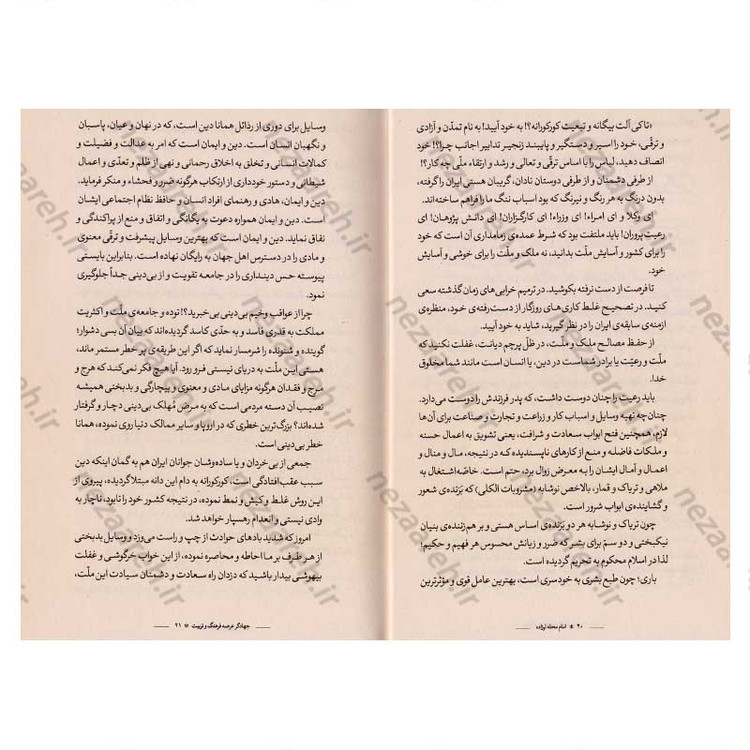 «تا کی آلت بیگانه و تبعیت کورکورانه؟! به خود آیید! به نام تمدّن و آزادی
و ترقّی، خود را اسیر و دستگیر و پایبند زنجیر تدابیر اجانب چرا؟! خود
انصاف دهید، لباس را با اساس ترقّی و تعالی و رشد و ارتقاء ملّی چه کار؟!
از طرفی دشمنان و از طرفی دوستان نادان، گریبان هستی ایران را گرفته،
بدون درنگ به هر رنگ و نیرنگ که بود اسباب ننگ ما را فراهم ساخته‌اند.
ای وکلا و ای امراء! ای وزراء! ای کارگزاران! ای دانش پژوهان! ای
رعیت پروران! باید ملتفت بود که شرط عمده‌ی زمامداری آن است که خود
را برای کشور و آسایش ملّت بدانید، نه ملک و ملّت را برای خوشی و آسایش
خود.
تا فرصت از دست نرفته بکوشید. در ترمیم خرابی‌های زمان گذشته سعی
کنید. در تصحیح غلط کاری‌های روزگار از دست‌رفته‌ی خود، منظره‌ی
ازمنه‌ی سابقه‌ی ایران را در نظر گیرید، شاید به خود آیید.
از حفظ مصالح ملک و ملّت، در ظلّ پرچم دیانت، غفلت نکنید که
ملّت و رعیّت یا برادر شماست در دین، یا انسان است مانند شما مخلوق
خدا.
باید رعیت را چنان دوست داشت، که پدر فرزندش را دوست می‌دارد.
چنان‌چه تهیه وسایل و اسباب کار و زراعت و تجارت و صناعت برای آن‌ها
لازم، همچنین فتح ابواب سعادت و شرافت، یعنی تشویق به اعمال حسنه
و ملکات فاضله و منع از کارهای ناپسندیده که در نتیجه، مال و منال و
اعمال و آمال ایشان را به معرض زوال برد، حتم است. خاصّه اشتغال به
ملاهی و تریاک و قمار، بالاخص نوشابه (مشروبات الکلی) که بَرَنده‌ی شعور
و گشاینده‌ی ابواب شرور است.
چون تریاک و نوشابه هر دو بَرَنده‌ی اساس هستی و بر هم زننده‌ی بنیان
نیکبختی و دو سمّ برای بشر که ضرر و زیانش محسوس هر فهیم و حکیم!
لذا در اسلام محکوم به تحریم گردیده است.
باری؛ چون طبع بشری به خودسری است، بهترین عامل قوی و مؤثرترین
۲۰ * امام محله نوژاده
وسایل برای دوری از رذائل همانا دین است، که در نهان و عیان، پاسبان
و نگهبان انسان است. دین و ایمان است که امر به عدالت و فضیلت و
کمالات انسانی و تخلق به اخلاق رحمانی و نهی از ظلم و تعدّی و اعمال
شیطانی و دستور خودداری از ارتکاب هرگونه ضرر و فحشاء و منکر فرماید.
دین و ایمان، هادی و رهنمای افراد انسان و حافظ نظام اجتماعی ایشان
است. دین و ایمان همواره دعوت به یگانگی و اتفاق و منع از پراکندگی و
نفاق نماید. دین و ایمان است که بهترین وسایل پیشرفت و ترقّی معنوی
و مادی را در دسترس اهل جهان به رایگان نهاده است. بنابراین بایستی
پیوسته حس دینداری را در جامعه تقویت و از بی‌دینی جداً جلوگیری
نمود.
چرا از عواقب وخیم بی‌دینی بی‌خبرید؟! توده و جامعه‌ی ملّت و اکثریت
مملکت به قدری فاسد و به حدّی کاسد گردیده‌اند که بیان آن بسی دشوار؛
گوینده و شنونده را شرمسار نماید که اگر این طریقه‌ی پر خطر مستمر ماند،
هستی این ملّت به دریای نیستی فرو رود. آیا هیچ فکر نمی‌کنند که هرج و
مرج و فقدان هرگونه مزایای مادی و معنوی و بیچارگی و بدبختی همیشه
نصیب آن دسته مردمی است که به مرض مُهلک بی‌دینی دچار و گرفتار
شده‌اند؟ بزرگ‌ترین خطری که در اروپا و سایر ممالک دنیا روی نموده، همانا
خطر بی‌دینی است.
جمعی از بی‌خردان و یا ساده‌وشان جوانان ایران هم به گمان اینکه دین
سبب عقب‌افتادگی است، کورکورانه به دام این دانه مبتلا گردیده، پیروی از
این روش غلط و کیش و نمط نموده، در نتیجه کشور خود را نابود، ناچار به
وادی نیستی و انعدام رهسپار خواهد شد.
امروز که شدید بادهای حوادث از چپ و راست می‌وزد و سایل بدبختی
از هر طرف بر ما احاطه و محاصره نموده، از این خواب خرگوشی و غفلت
بیهوشی بیدار باشید که دزدان راه سعادت و دشمنان سیادت این ملّت،
جهادگر عرصه فرهنگ و تربیت * ۲۱
nezaareh.ir